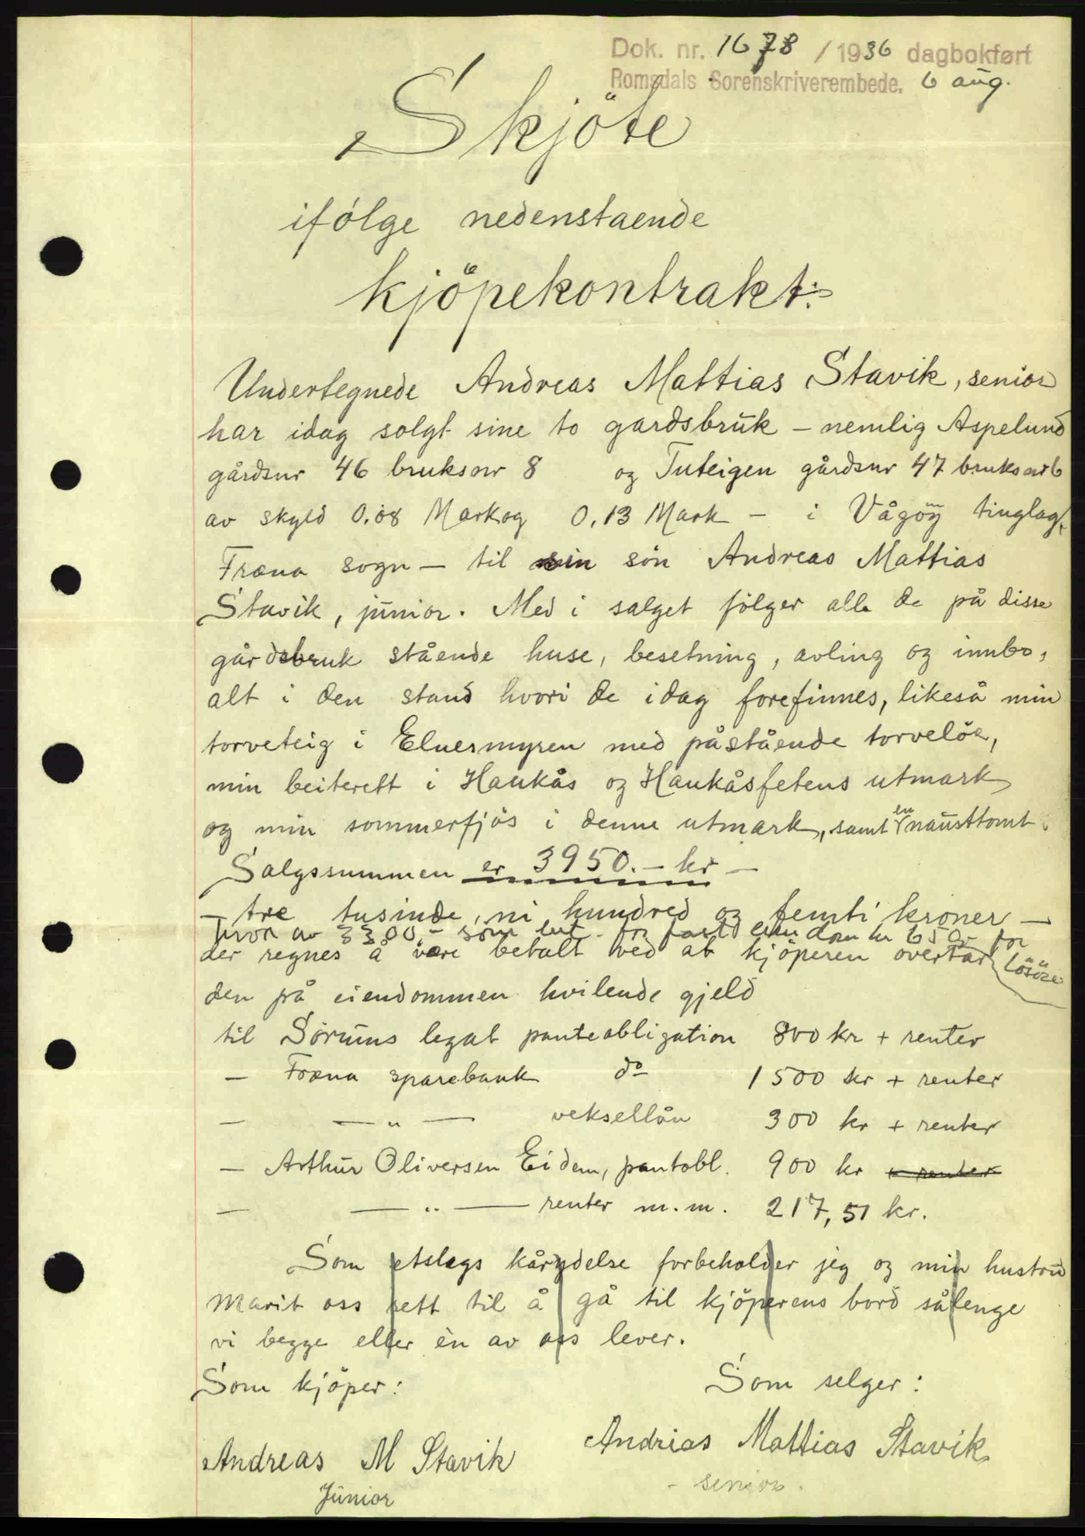 Dok. nr. 1678 / 1936 dagbokført
Romsdals Sorenskriverembede. 6 aug.
Skjöte
ifölge nedenstaende
kjöpekontrakt:
Undertegnede Andreas Mattias Stavik, senior
har idag solgt sine to gardsbruk - nemlig Aspelund
gårdsnr 46 bruksnr 8 og Tuteigen gårdsnr 47 bruksnr 6
av skyld 0.08 Mark og 0,13 Mark - i Vågöy tinglag,
Fræna sogn - til min sön Andreas Mattias
Stavik, junior. Med i salget fölger alle de på disse
gårdsbruk stående huse, besetning, avling og innbo,
alt i den stand hvori de idag forefinnes, likeså min
torveteig i Elnesmyren med påstående torvelöe,
min beiterett i Haukås og Haukåsfetens utmark
og min sommerfjös i denne utmark, samt en nausttomt.
Salgssummen er 3950.- kr -
- tre tusinde, ni hundred og femti kroner -
hvor av 3300 - som for fast eiendom kr 650,- for lösöre
der regnes å være betalt ved at kjöperen overtar
den på eiendommen hvilende gjeld
til Sörums legat panteobligation 800 kr + renter
- Fræna sparebank do 1500 kr + renter
- - " - veksellån 300 kr + renter
- Arthur Oliversen Eidem, pantobl. 900 kr + renter
- - " - renter m.m. 217,51 kr.
Som etslags kårydelse forbeholder jeg og min hustru
Marit oss rett til å gå til kjöperens bord sålenge
vi begge eller èn av oss lever.
Som kjöper: Som selger:
Andreas M Stavik Andrias Mattias Stavik
Junior - senior.